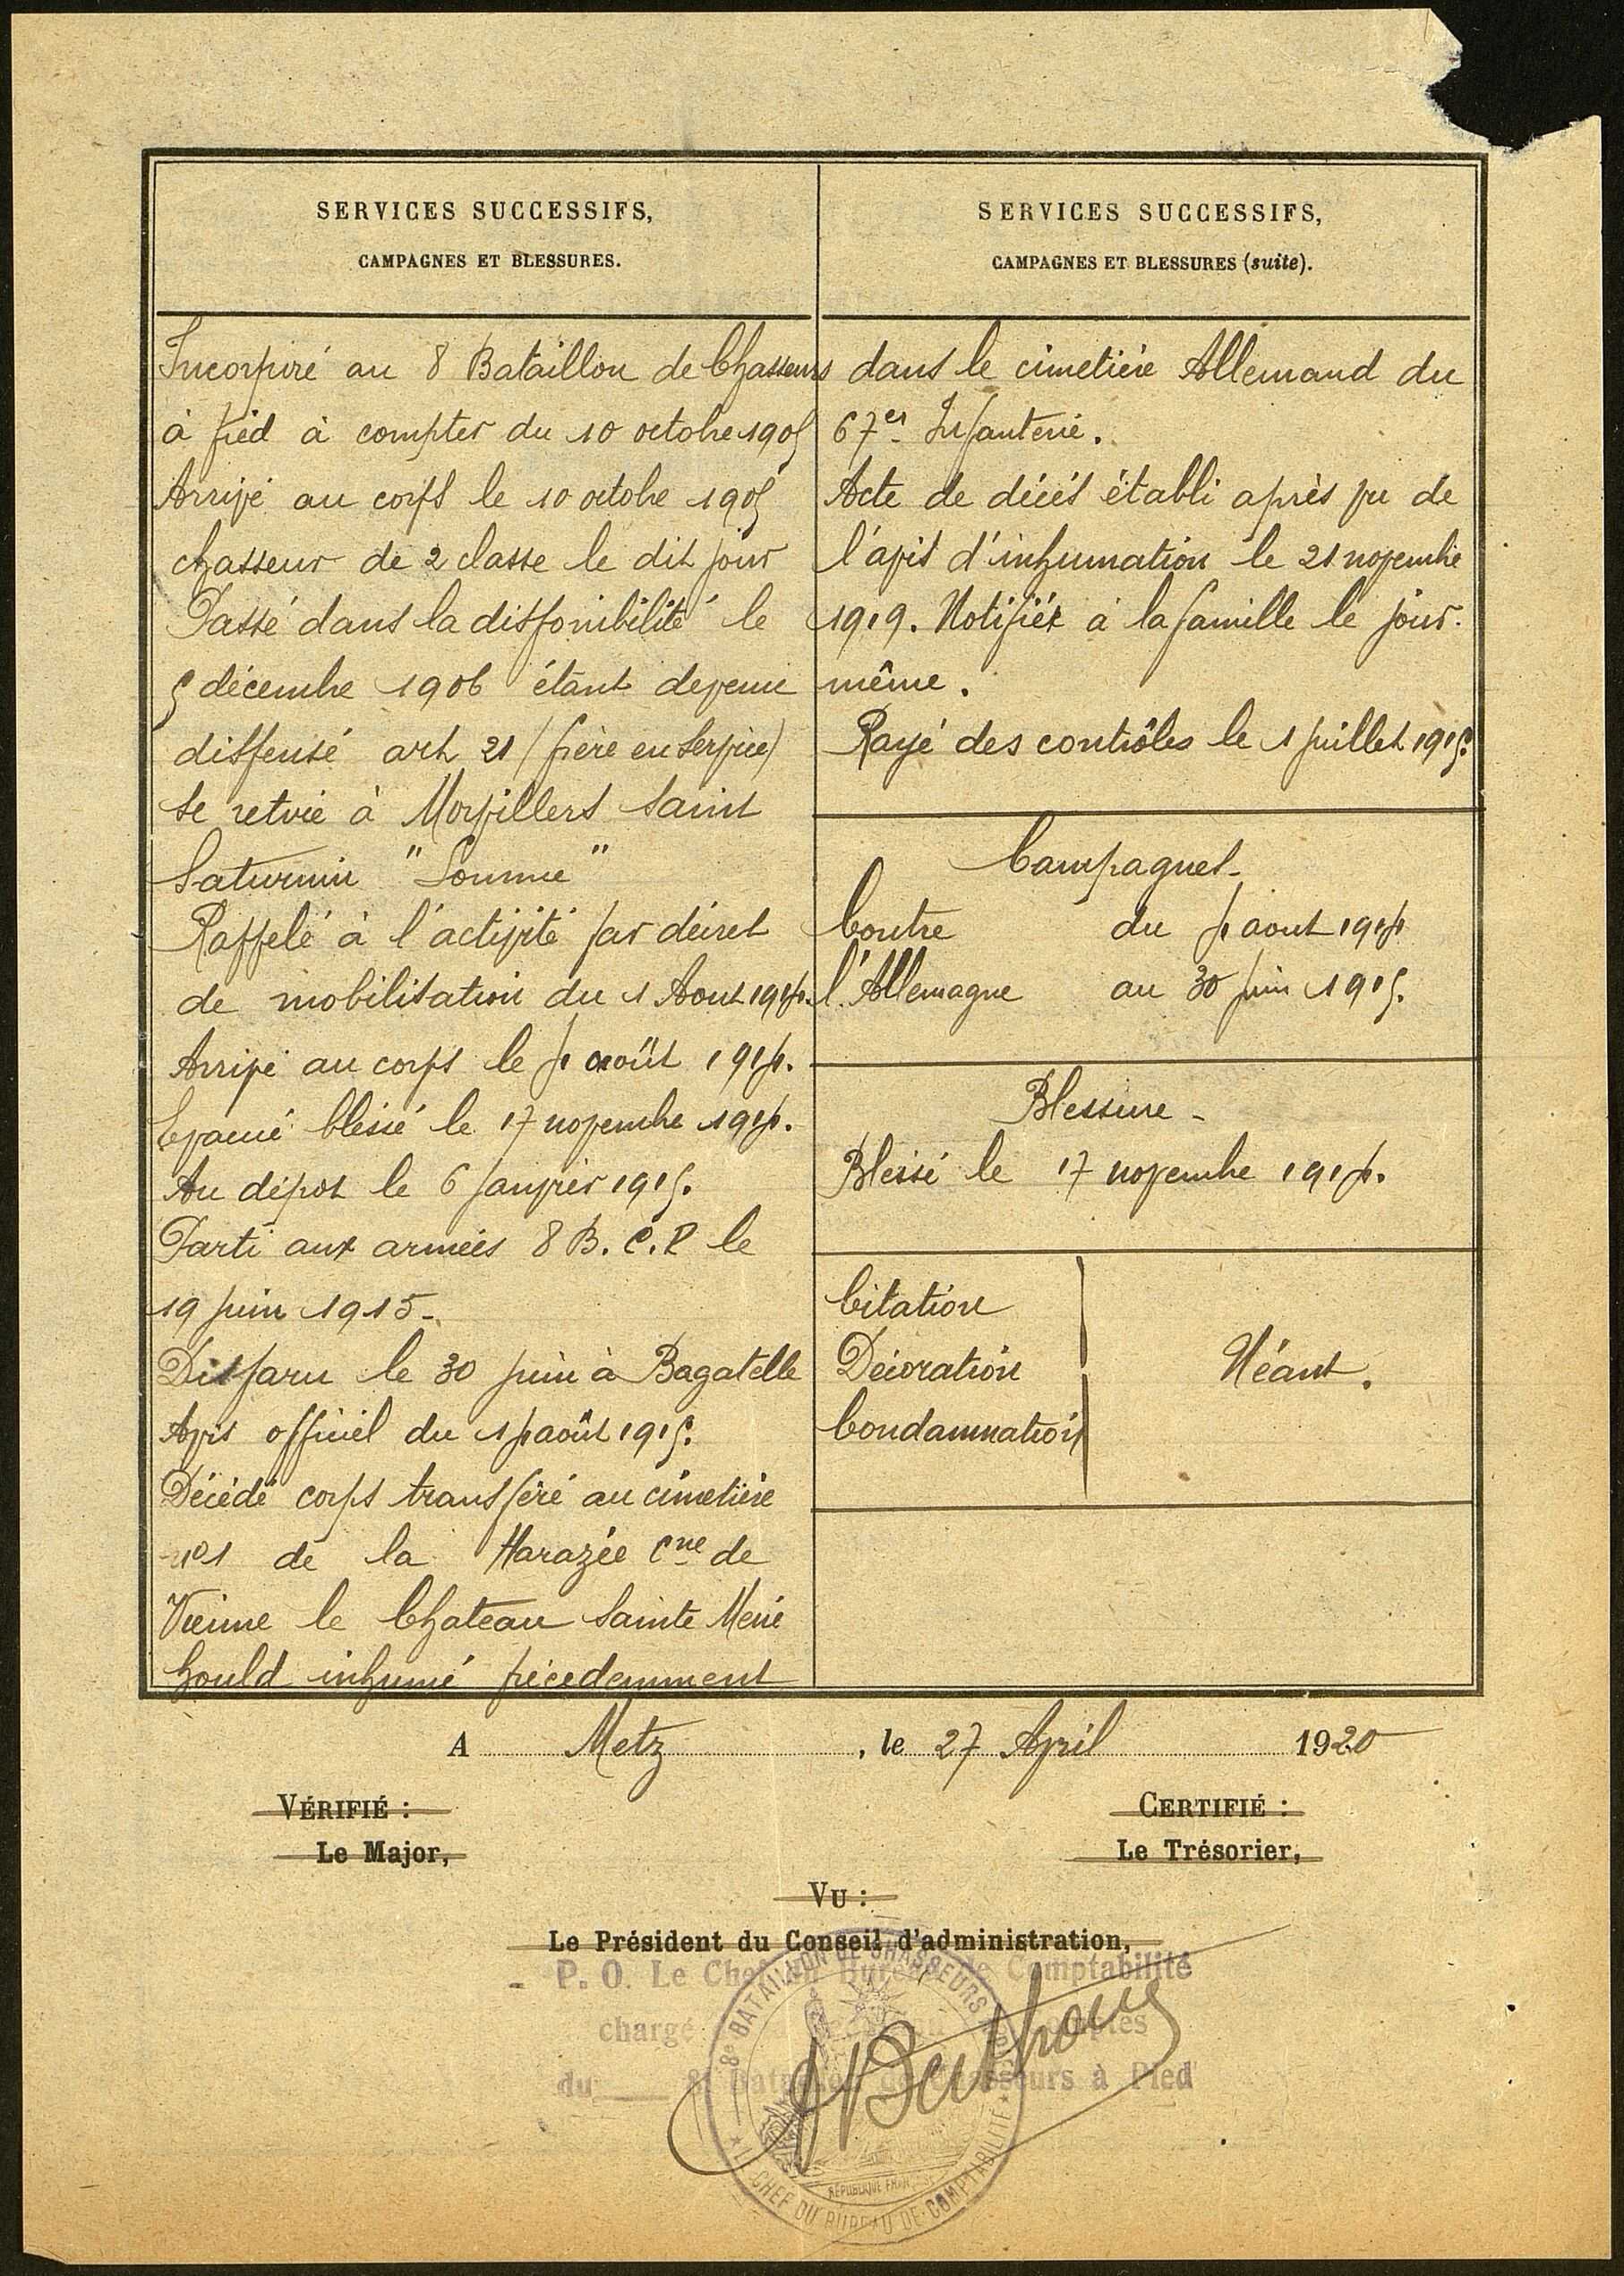 SERVICES SUCCESSIFS,
CAMPAGNES ET BLESSURES.
Incorporé au 8 Bataillon de Chasseurs
à pied à compter du 10 octobre 1905
Arrivé au corps le 10 octobre 1905
chasseur de 2 classe le dit jour
Passé dans la disponibilité le
5 décembre 1906 étant devenu
dispensé art 21 (frère en service)
se retire à Morvillers Saint
Saturnin "Somme"
Rappelé à l'activité par décret
de mobilisation du 1 Aout 1914.
Arrivé au corps le 4 août 1914.
Evacué blessé le 17 novembre 1914.
Au dépot le 6 Janvier 1915.
Parti aux armées 8 B.C.P le
19 juin 1915-
Disparu le 30 juin à Bagatelle
Avis officiel du 14 août 1915.
Décédé corps transféré au cimetière
n°1 de la Harazée Cne de
Vienne le Chateau Sainte Mene
hould inhumé précedemment
SERVICES SUCCESSIFS,
CAMPAGNES ET BLESSURES (suite).
dans le cimetière Allemand du
67er Infanterie.
Acte de décés établi après vu de
l'avis d'inhumation le 21 novembre
1919. Notifiée à la famille le jour-
même.
Rayé des contrôles le 1 juillet 1915.
Campagnes-
Contre du 4 aout 1914
l'Allemagne au 30 juin 1915.
Blessure-
Blessé le 17 novembre 1914.
Citation
Décoration Néant.
Condamnation
A Metz, le 27 Avril 1920
VÉRIFIÉ :
Le Major,
CERTIFIÉ :
Le Trésorier,
VU :
Le Président du Conseil d'administration,
P. O. Le Chef du Bureau de Comptabilité
chargé
du 8e Bataillon de Chasseurs à Pied
8e BATAILLON DE CHASSEURS
LE CHEF DU BUREAU DE COMPTABILITÉ
RÉPUBLIQUE FRANÇAISE